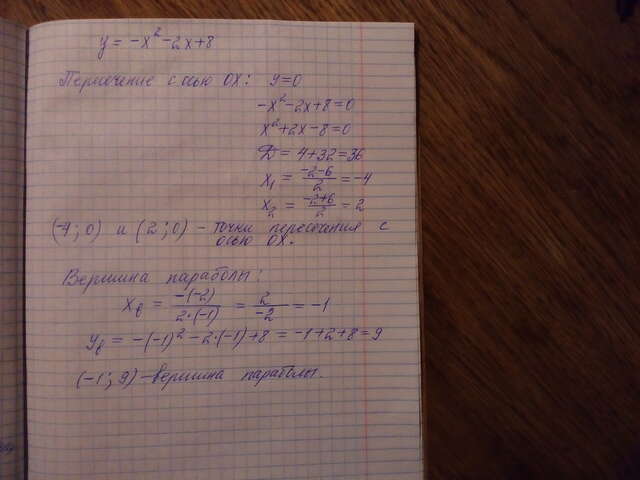 y = -x² - 2x + 8
Пересечение с осью OX: y=0
-x² - 2x + 8 = 0
x² + 2x - 8 = 0
D = 4 + 32 = 36
x₁ = (-2-6)/2 = -4
x₂ = (-2+6)/2 = 2
(-4; 0) и (2; 0) - точки пересечения с
осью OX.
Вершина параболы:
x_в = (-(-2))/(2·(-1)) = 2/(-2) = -1
y_в = -(-1)² - 2·(-1) + 8 = -1 + 2 + 8 = 9
(-1; 9) - вершина параболы.